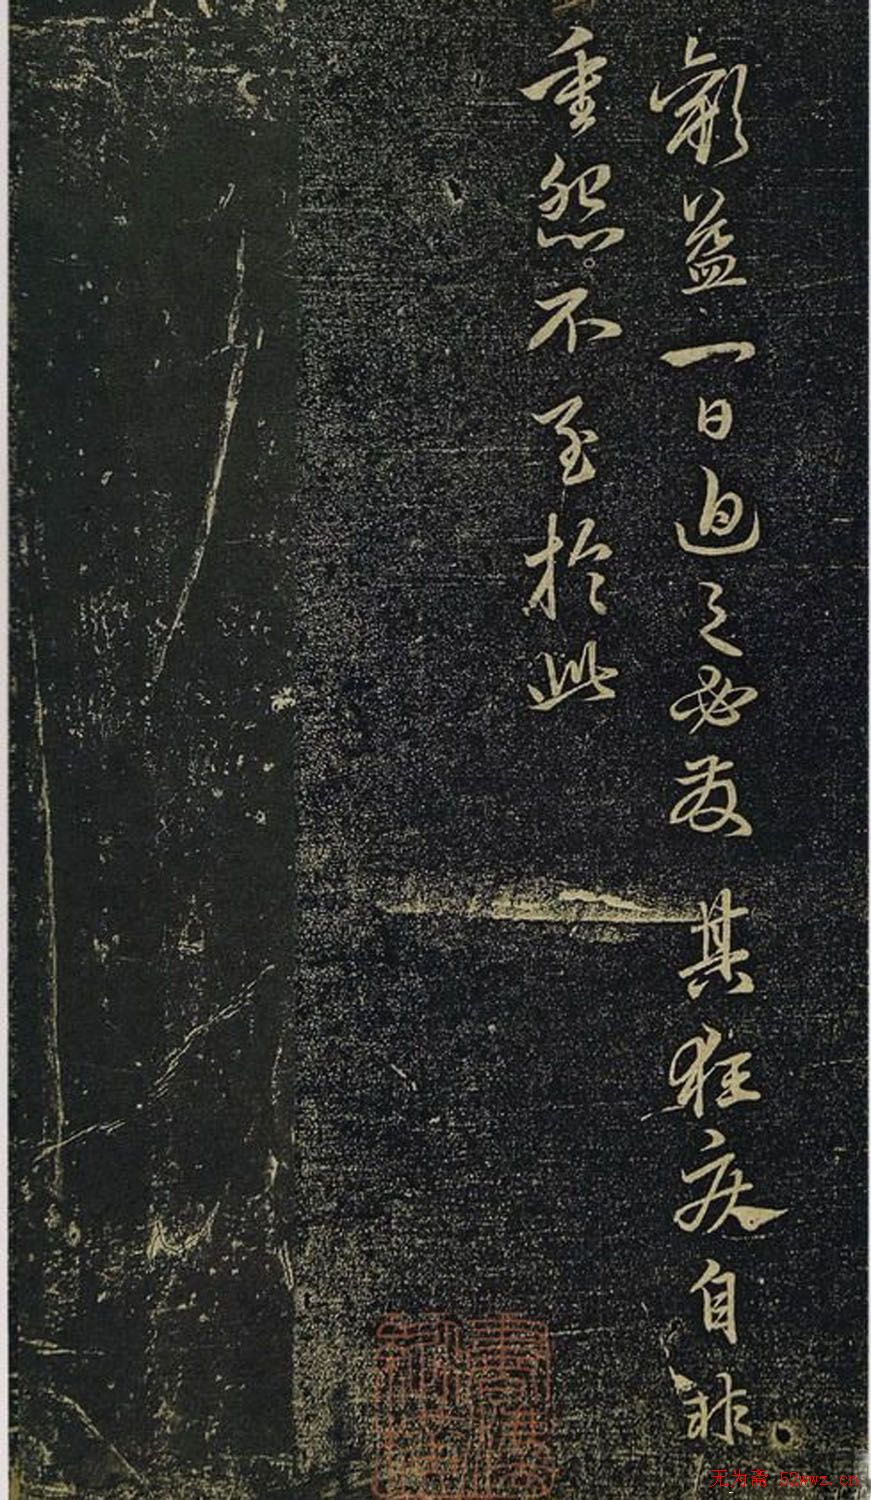 歡益一旦迫之必發其狂疾自非
重怨不至於此
无为斋 52wwz.cn